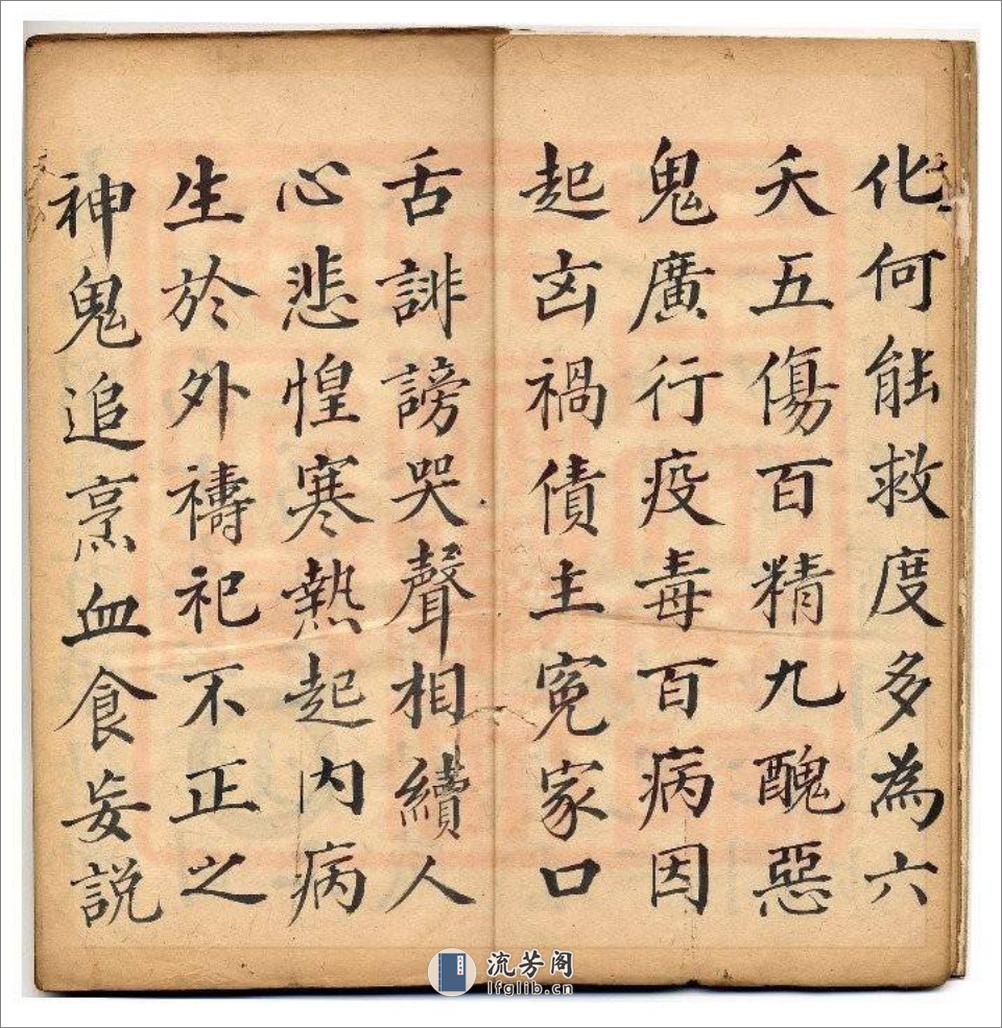 化何能救度多為六
夭五傷百精九醜惡
鬼廣行疫毒百病因
起凶禍債主冤家口
舌誹謗哭聲相續人
心悲惶寒熱起內病
生於外禱祀不正之
神鬼追烹血食妄説
流芳阁
lfglib.cn